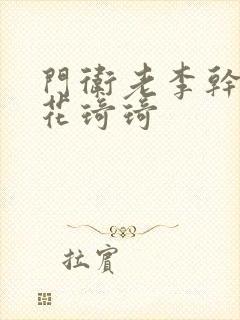 門衛老李幹
花琦琦
拉賓